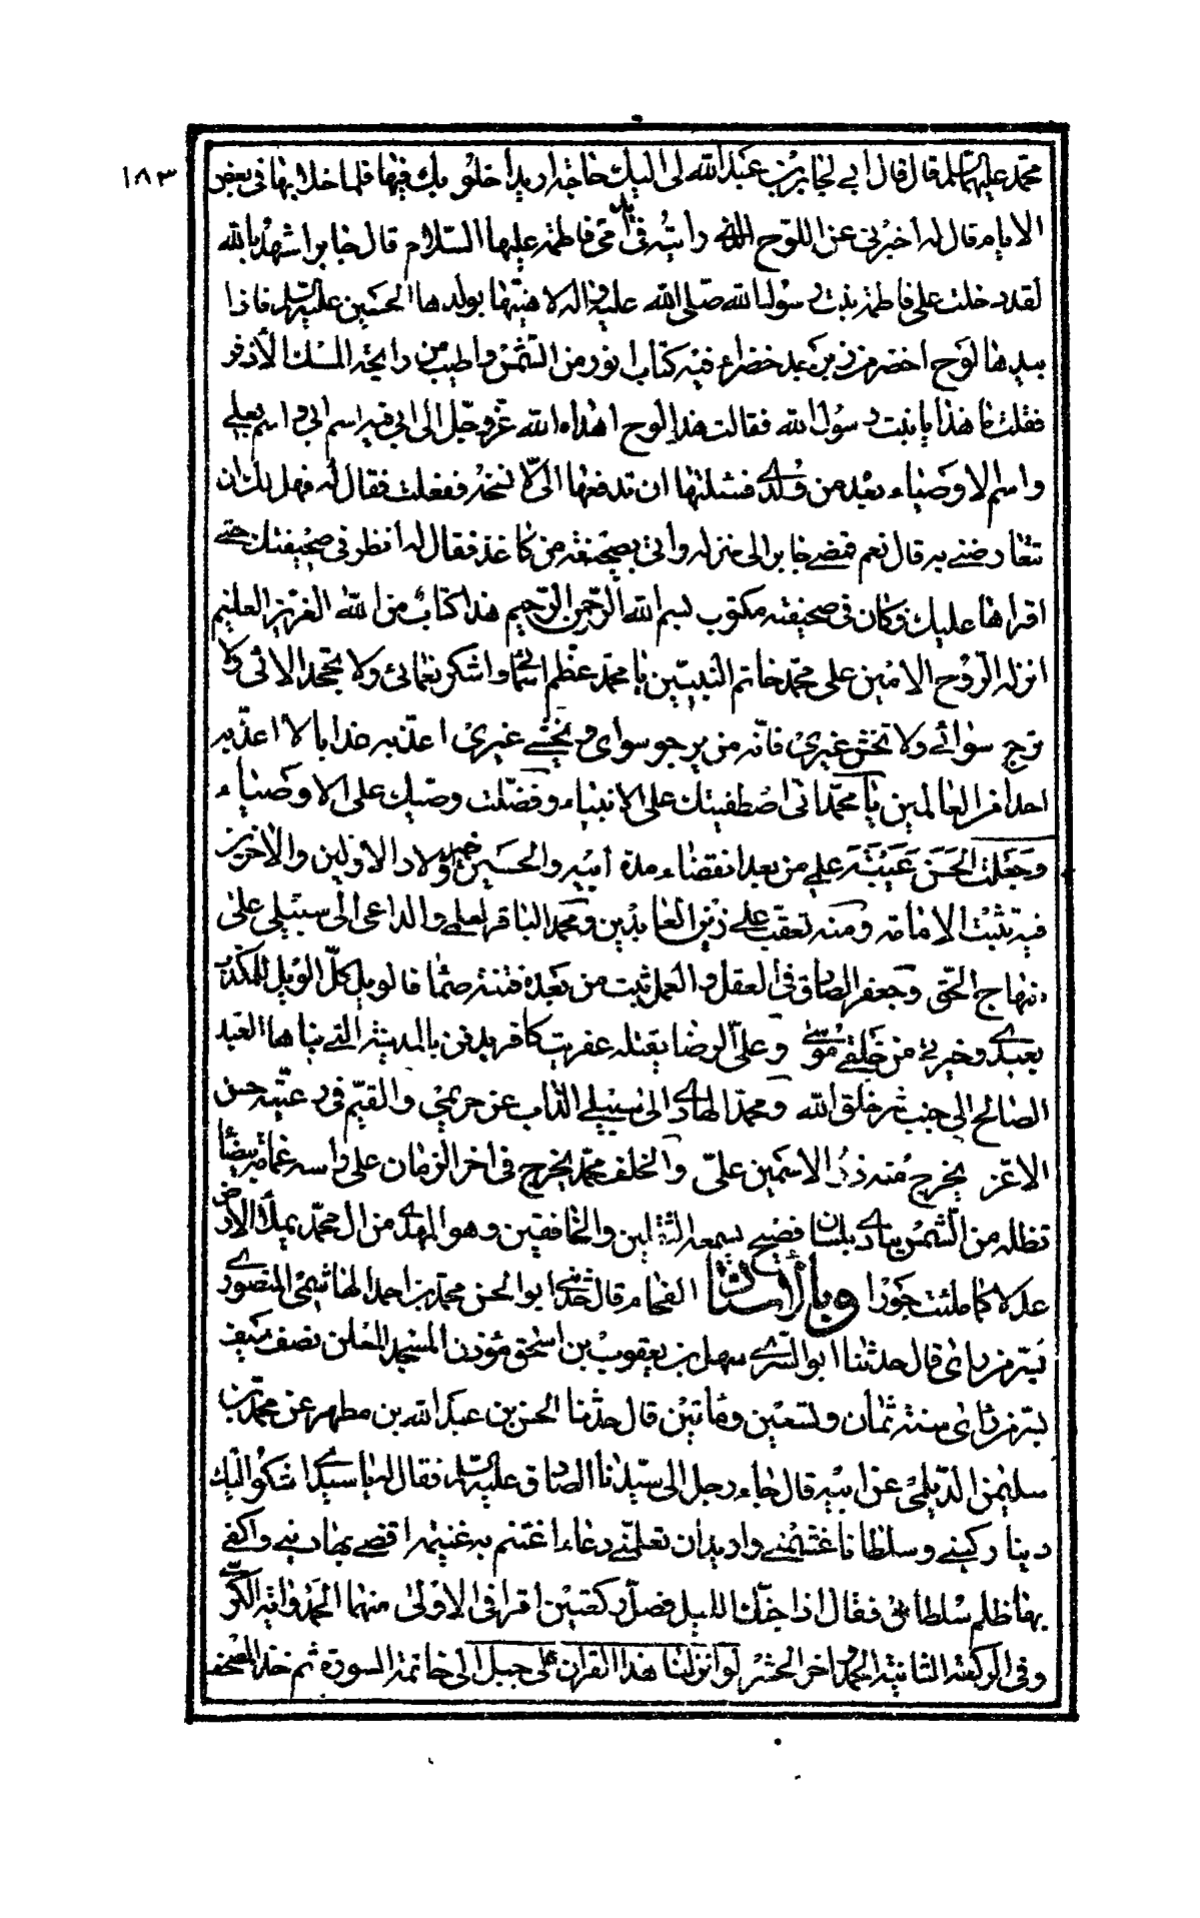 ١٨٣
محمد عليهما السلم قال قال ابي لجابر بن عبد الله لي اليك حاجة اريد اخلو بك فيها فلما خلا بها في بعض
الايام قال له اخبرني عن اللوح الذي رايته في يد امي فاطمة عليها السلام قال جابر اشهد بالله
لقد دخلت على فاطمة بنت رسول الله صلى الله عليه واله لاهنيها بولدها الحسين عليه السلم فاذا
بيدها لوح اخضر من زبرجد خضراء فيه كتاب انور من الشمس واطيب من رايحة المسك الاذفر
فقلت ما هذا يا بنت رسول الله فقالت هذا لوح اهداه الله عز وجل الى ابي فيه اسم ابي واسم بعلي
واسم الاوصياء بعده من ولدي فسئلتها ان تدفعها الي لانسخه ففعلت فقال له فهل لك ان
تعارضني به قال نعم فمضى جابر الى منزله واتى بصحيفة من كاغذ فقال له انظر في صحيفتك حتى
اقراها عليك وكان في صحيفته مكتوب بسم الله الرحمن الرحيم هذا كتاب من الله العزيز العليم
انزله الروح الامين على محمد خاتم النبيين يا محمد عظم اسمائي واشكر نعمائي ولا تجحد الائي ولا
ترج سوائي ولا تخش غيري فانه من يرجو سواي ويخشى غيري اعذبه عذابا لا اعذبه
احدا من العالمين يا محمد اني اصطفيتك على الانبياء وفضلت وصيك على الاوصياء
وجعلت الحسن عيبة علمي من بعد انقضاء مدة ابيه والحسين خير اولاد الاولين والاخرين
فيه تثبت الامامة ومنه تعقب علي زين العابدين ومحمد الباقر لعلمي والداعي الى سبيلي على
منهاج الحق وجعفر الصادق في العقل والعمل ثبت من بعده فتنة صماء فالويل كل الويل للمكذب
بعبدي وخيرتي من خلقي موسى وعلي الرضا يقتله عفريت كافر يدفن بالمدينة التي بناها العبد
الصالح الى جنب شر خلق الله ومحمد الهادي الى سبيلي الذاب عن حريمي والقيم في رعيته حسن
الاغر يخرج منه ذو الاسمين علي والخلف محمد يخرج في اخر الزمان على راسه غمامة بيضاء
تظله من الشمس ينادي بلسان فصيح يسمعه الثقلين والخافقين وهو المهدي من ال محمد يملأ الارض
عدلا كما ملئت جورا وبالاسناد الفحام قال حدثني ابو الحسن محمد بن احمد الهاشمي المنصوري
بسر من راى قال حدثنا ابو السري سهل بن يعقوب بن اسحق مؤذن المسجد المعلق بصف شنيف
بسر من راى سنة ثمان وتسعين ومأتين قال حدثنا الحسن بن عبد الله بن مطهر عن محمد بن
سليمن الديلمي عن ابيه قال جاء رجل الى سيدنا الصادق عليه السلم فقال له يا سيدي اشكو اليك
دينا ركبني وسلطانا غشمني واريد ان تعلمني دعاء اغتنم به غنيمة اقضي بها ديني واكفي
بها ظلم سلطاني فقال اذا جنك الليل فصل ركعتين اقرا في الاولى منهما الحمد واية الكرسي
وفي الركعة الثانية الحمد واخر الحشر لو انزلنا هذا القران على جبل الى خاتمة السورة ثم خذ المصحف